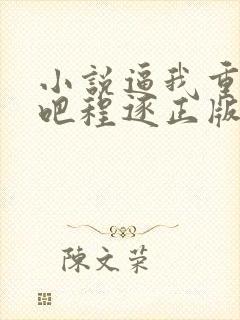 小說逼我重
吧程逐正版
陳文荣